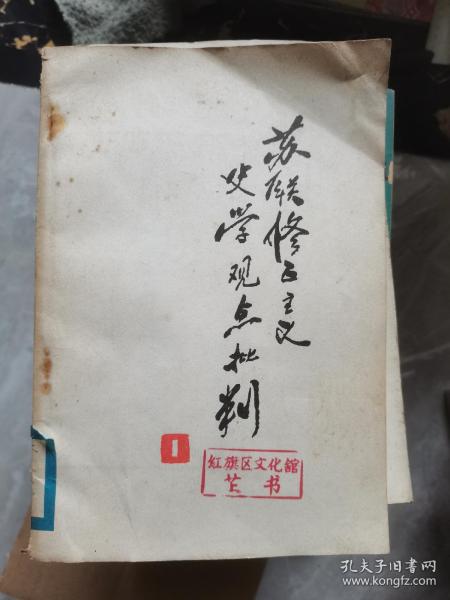 苏联修正主义
史学观点批判
1
红旗区文化館
芷书
孔夫子旧书网
www.kongfz.com